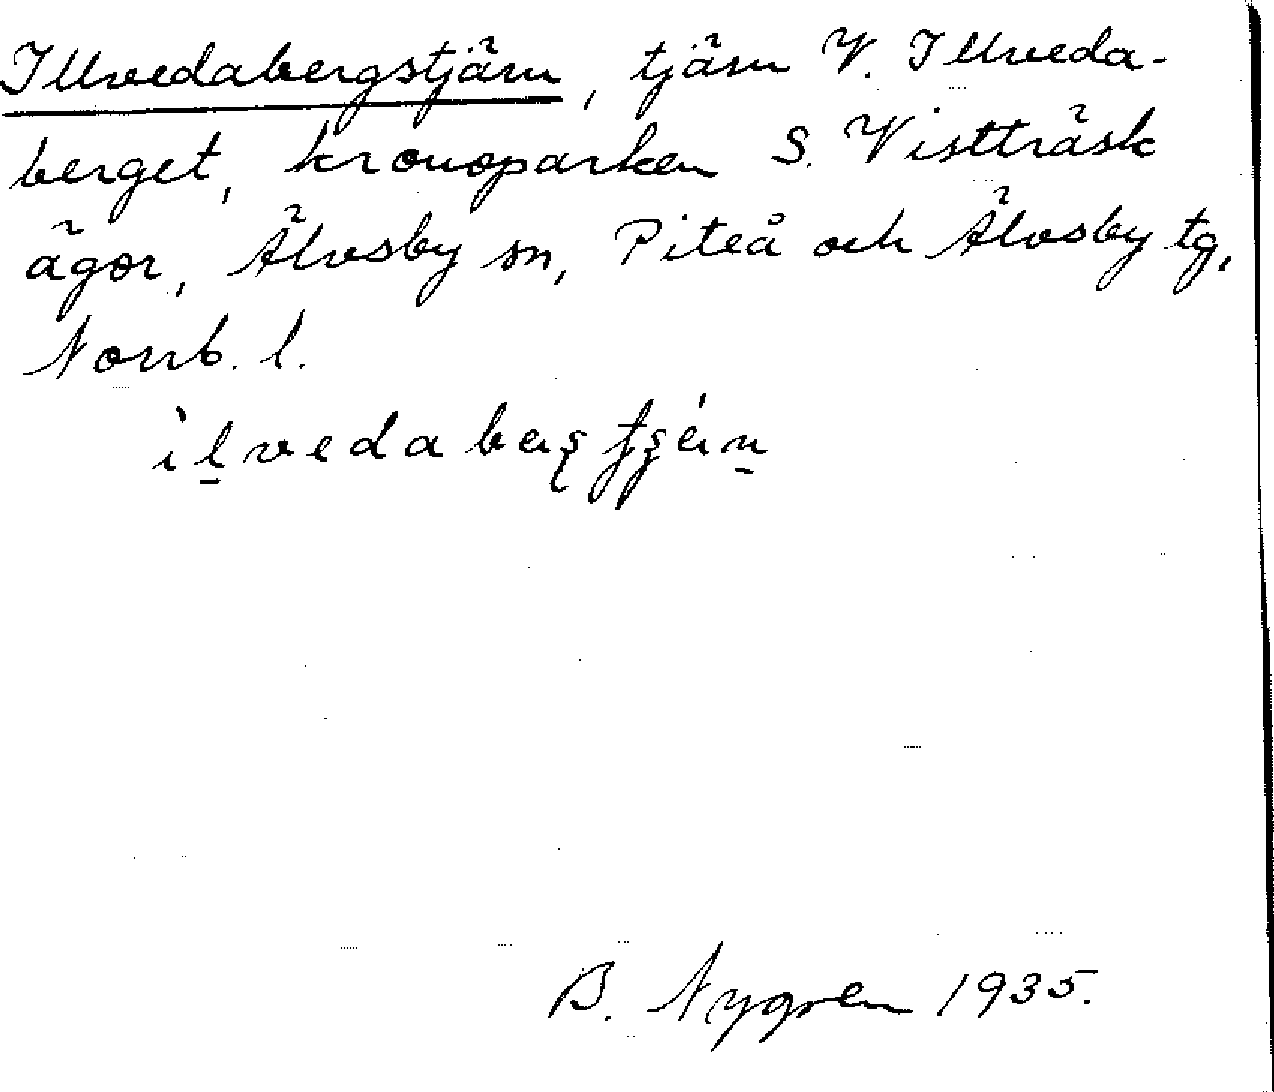 Illvedabergstjärn, tjärn V. Illveda-
berget, kronoparken S. Vistträsk
ägor, Älvsby sn, Piteå och Älvsby tg,
Norrb. l.
B. Nygren 1935.